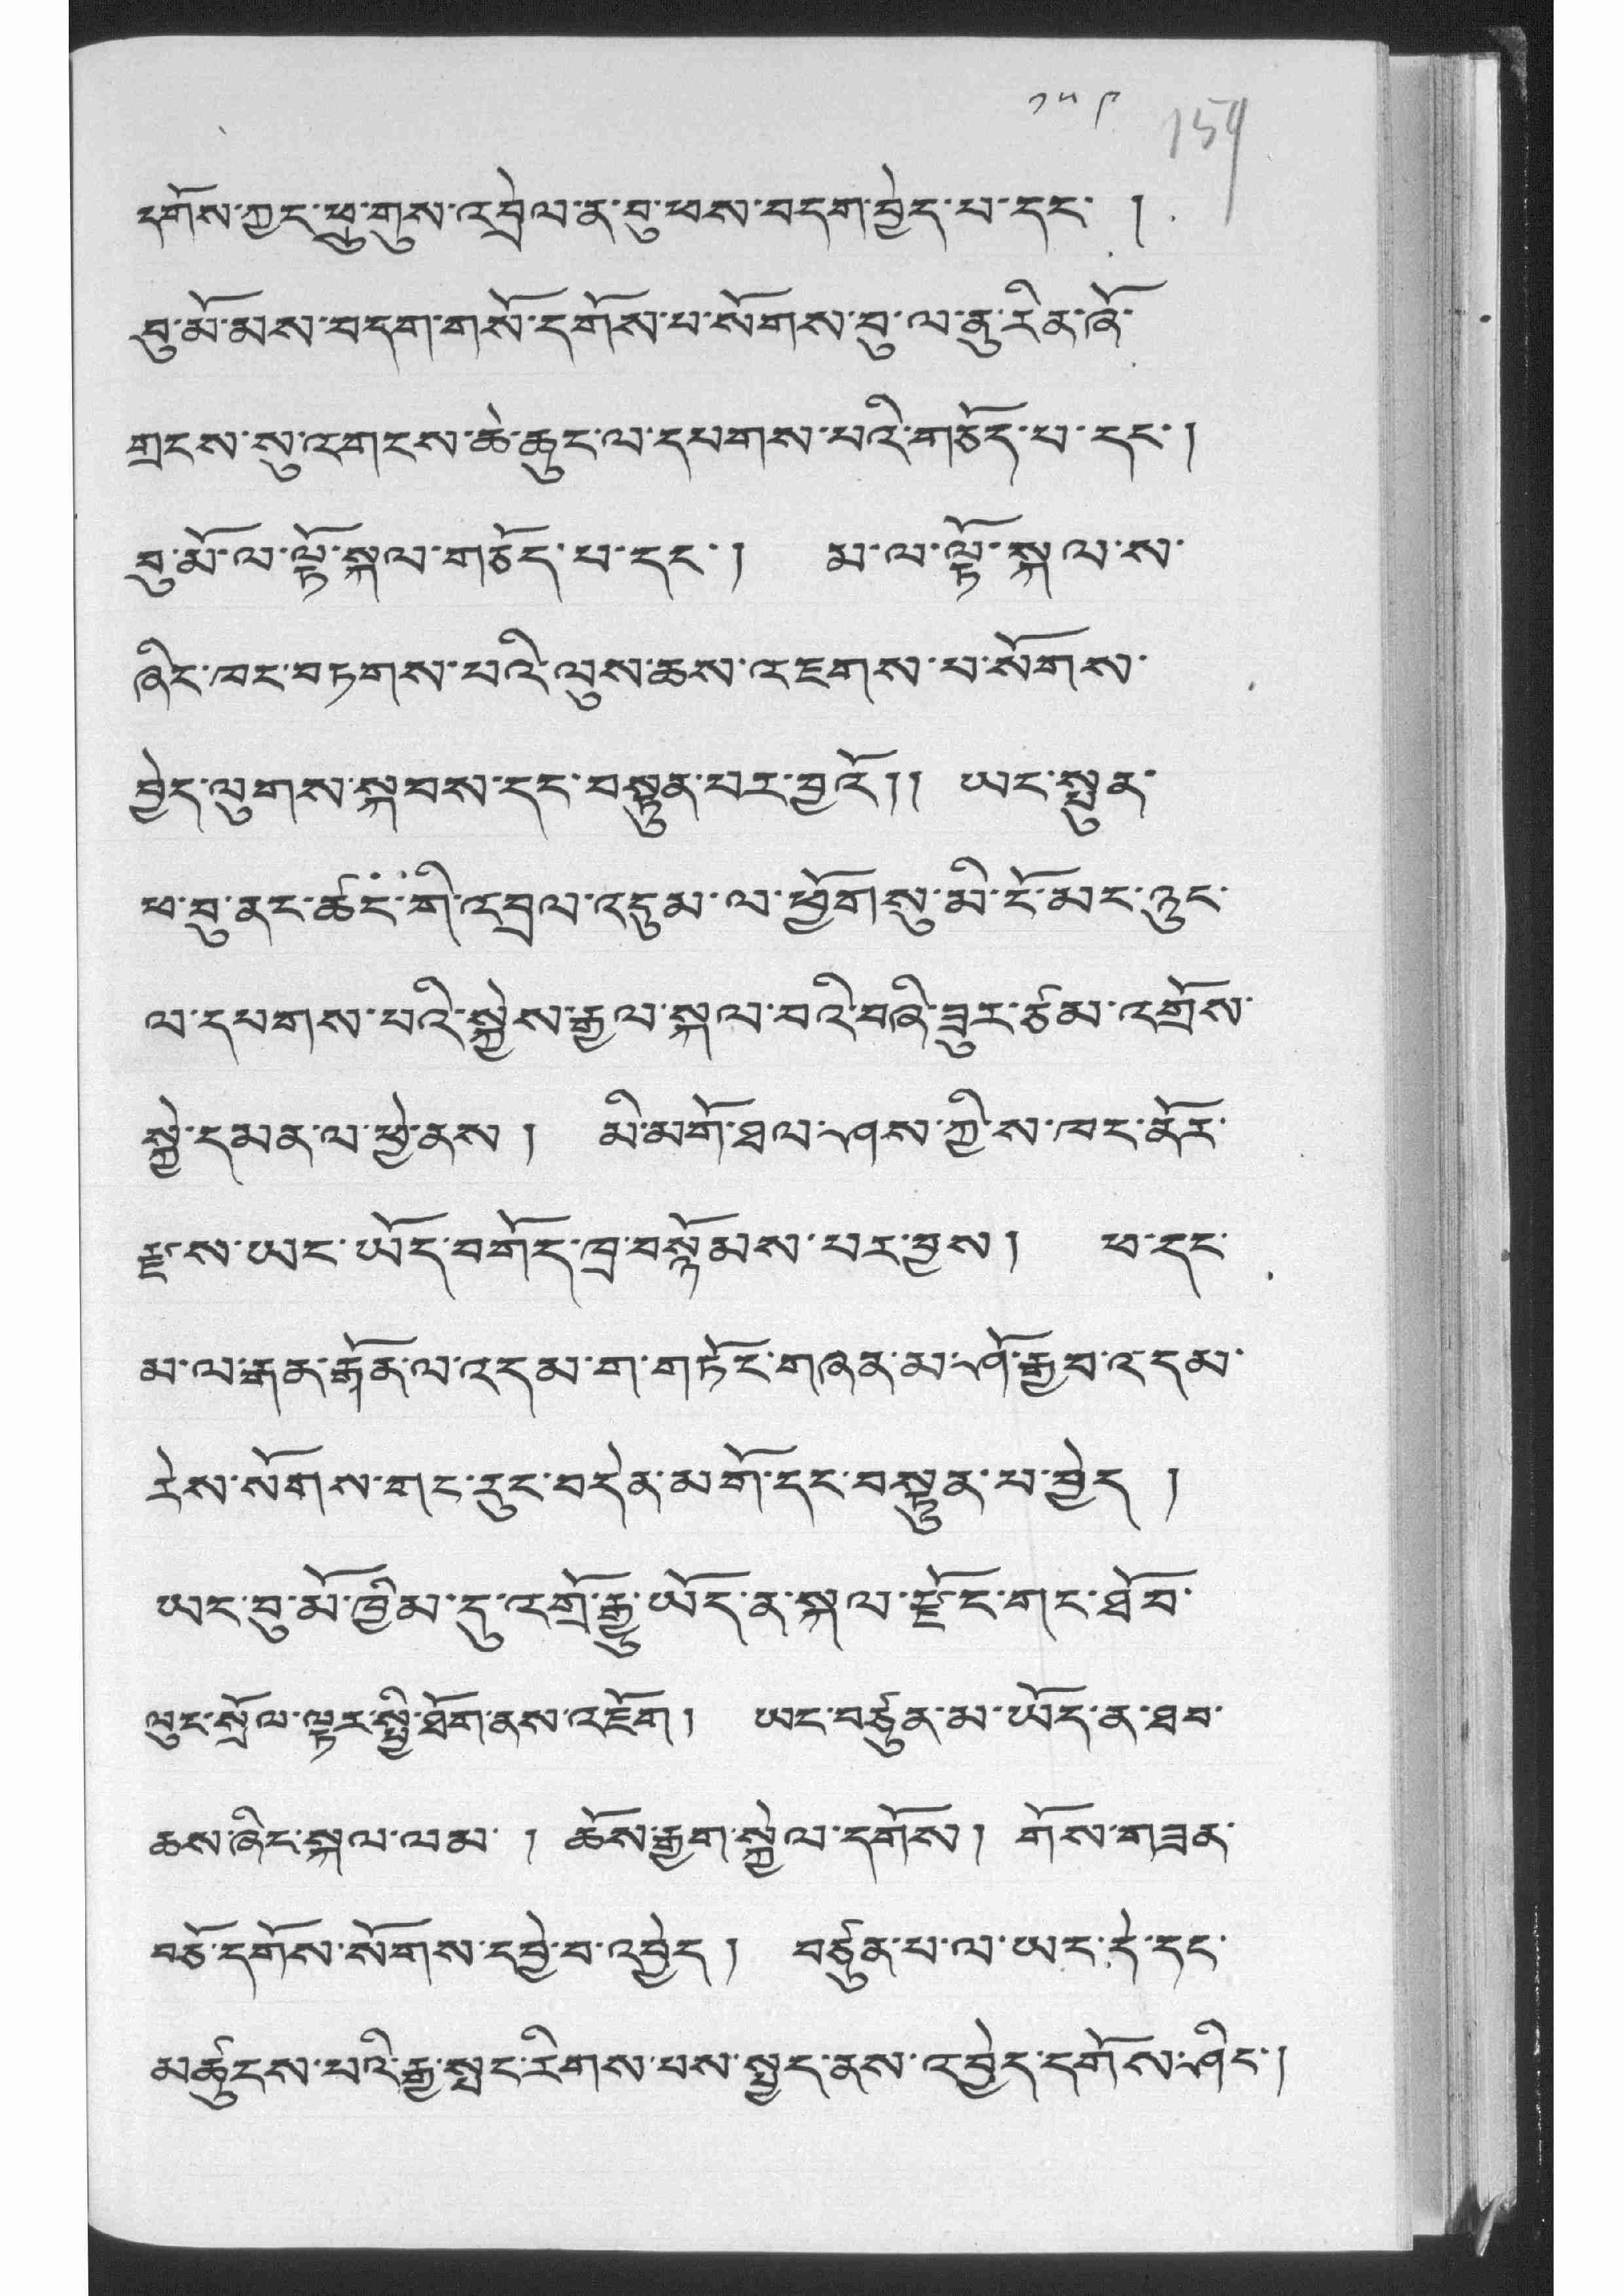 ༡༥༩ 159
དགོས་ཀྱང་ཕྲུ་གུས་འབྲེལ་ན་བུ་ཕས་བདག་བྱེད་པ་དང་ །
བུ་མོ་མས་བདག་གསོ་དགོས་པ་སོགས་བུ་ལ་ནུ་རིན་ཞོ་
གྲངས་སུ་འགངས་ཆེ་ཆུང་ལ་དཔགས་པའི་གཅོད་པ་དང་།
བུ་མོ་ལ་ལྟོ་སྐལ་གཅོད་པ་དང་། མ་ལ་ལྟོ་སྐལ་ས་
ཞིང་ཁང་བཏགས་པའི་ལུས་ཆས་འཇགས་པ་སོགས་
བྱེད་ལུགས་སྐབས་དང་བསྟུན་པར་བྱའོ།། ཡང་སྤུན་
ཕ་བུ་ནང་ཚངང་གི་འབྲལ་འདུམ་ལ་ཕྱོགསུ་མི་ངོ་མང་ཉུང་
ལ་དཔགས་པའི་སྐྱེས་རྒྱལ་སྐལ་བའི་བཞི་ཟུར་ཙམ་འགྲོས་
སྐྱེ་དམན་ལ་ཕྱེ་ནས། མི་མགོ་ཐལ་ཤས་ཀྱིས་ཁང་ནོར་
རྫས་ཡང་ཡོད་བགོད་ཁྲ་བསྙོམས་པར་བྱས། ཕ་དང་
མ་ལ་རྒན་རྒོན་ལ་འདམ་ག་གཏོང་གཞན་མ་ཤོ་རྒྱབ་འདམ་
རེས་སོགས་གང་རུང་བདེན་མགོ་དང་བསྟུན་པ་བྱེད །
ཡང་བུ་མོ་ཁྱིམ་དུ་འགྲོ་རྒྱུ་ཡོད་ན་སྐལ་རྫོང་གང་ཐོབ་
ལུང་སྲོལ་ལྟར་སྤྱི་ཐོག་ནས་འཇོག། ཡང་བཙུན་མ་ཡོད་ན་ཐབ་
ཆས་ཞིང་སྐལ་ལམ །ཆོས་རྒྱག་སྐྱེལ་དགོས། གོས་གཟན་
བཅོ་དགོས་སོགས་དབྱེ་བ་འབྱེད། བཙུན་པ་ལ་ཡང་དེ་དང་
མཚུངས་པའི་རྒྱ་སྤང་རིགས་པས་སྤྱད་ནས་འབྱེད་དགོས་ཤིང་།